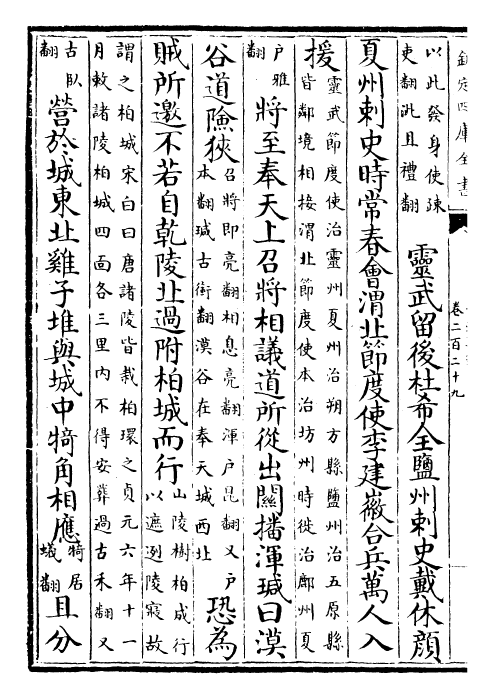 欽定四庫全書
卷二百二十九
以此發身使疎
吏翻此且禮翻
靈武留後杜希全鹽州刺史戴休顔
夏州刺史時常春會渭北節度使李建徽合兵萬人入
援
靈武節度使治靈州夏州治朔方縣鹽州治五原縣
皆鄰境相接渭北節度使本治坊州時徙治鄜州夏
户雅
翻
將至奉天上召將相議道所從出關播渾瑊曰漠
谷道險狹
召將即亮翻相息亮翻渾户昆翻又户
本翻瑊古銜翻漠谷在奉天城西北
恐為
賊所邀不若自乾陵北過附柏城而行
山陵樹柏成行
以遮迾陵寢故
謂之柏城宋白曰唐諸陵皆栽柏環之貞元六年十一
月敕諸陵柏城四面各三里内不得安葬過古禾翻又
古臥
翻
營於城東北雞子堆與城中犄角相應
犄居
蟻翻
且分